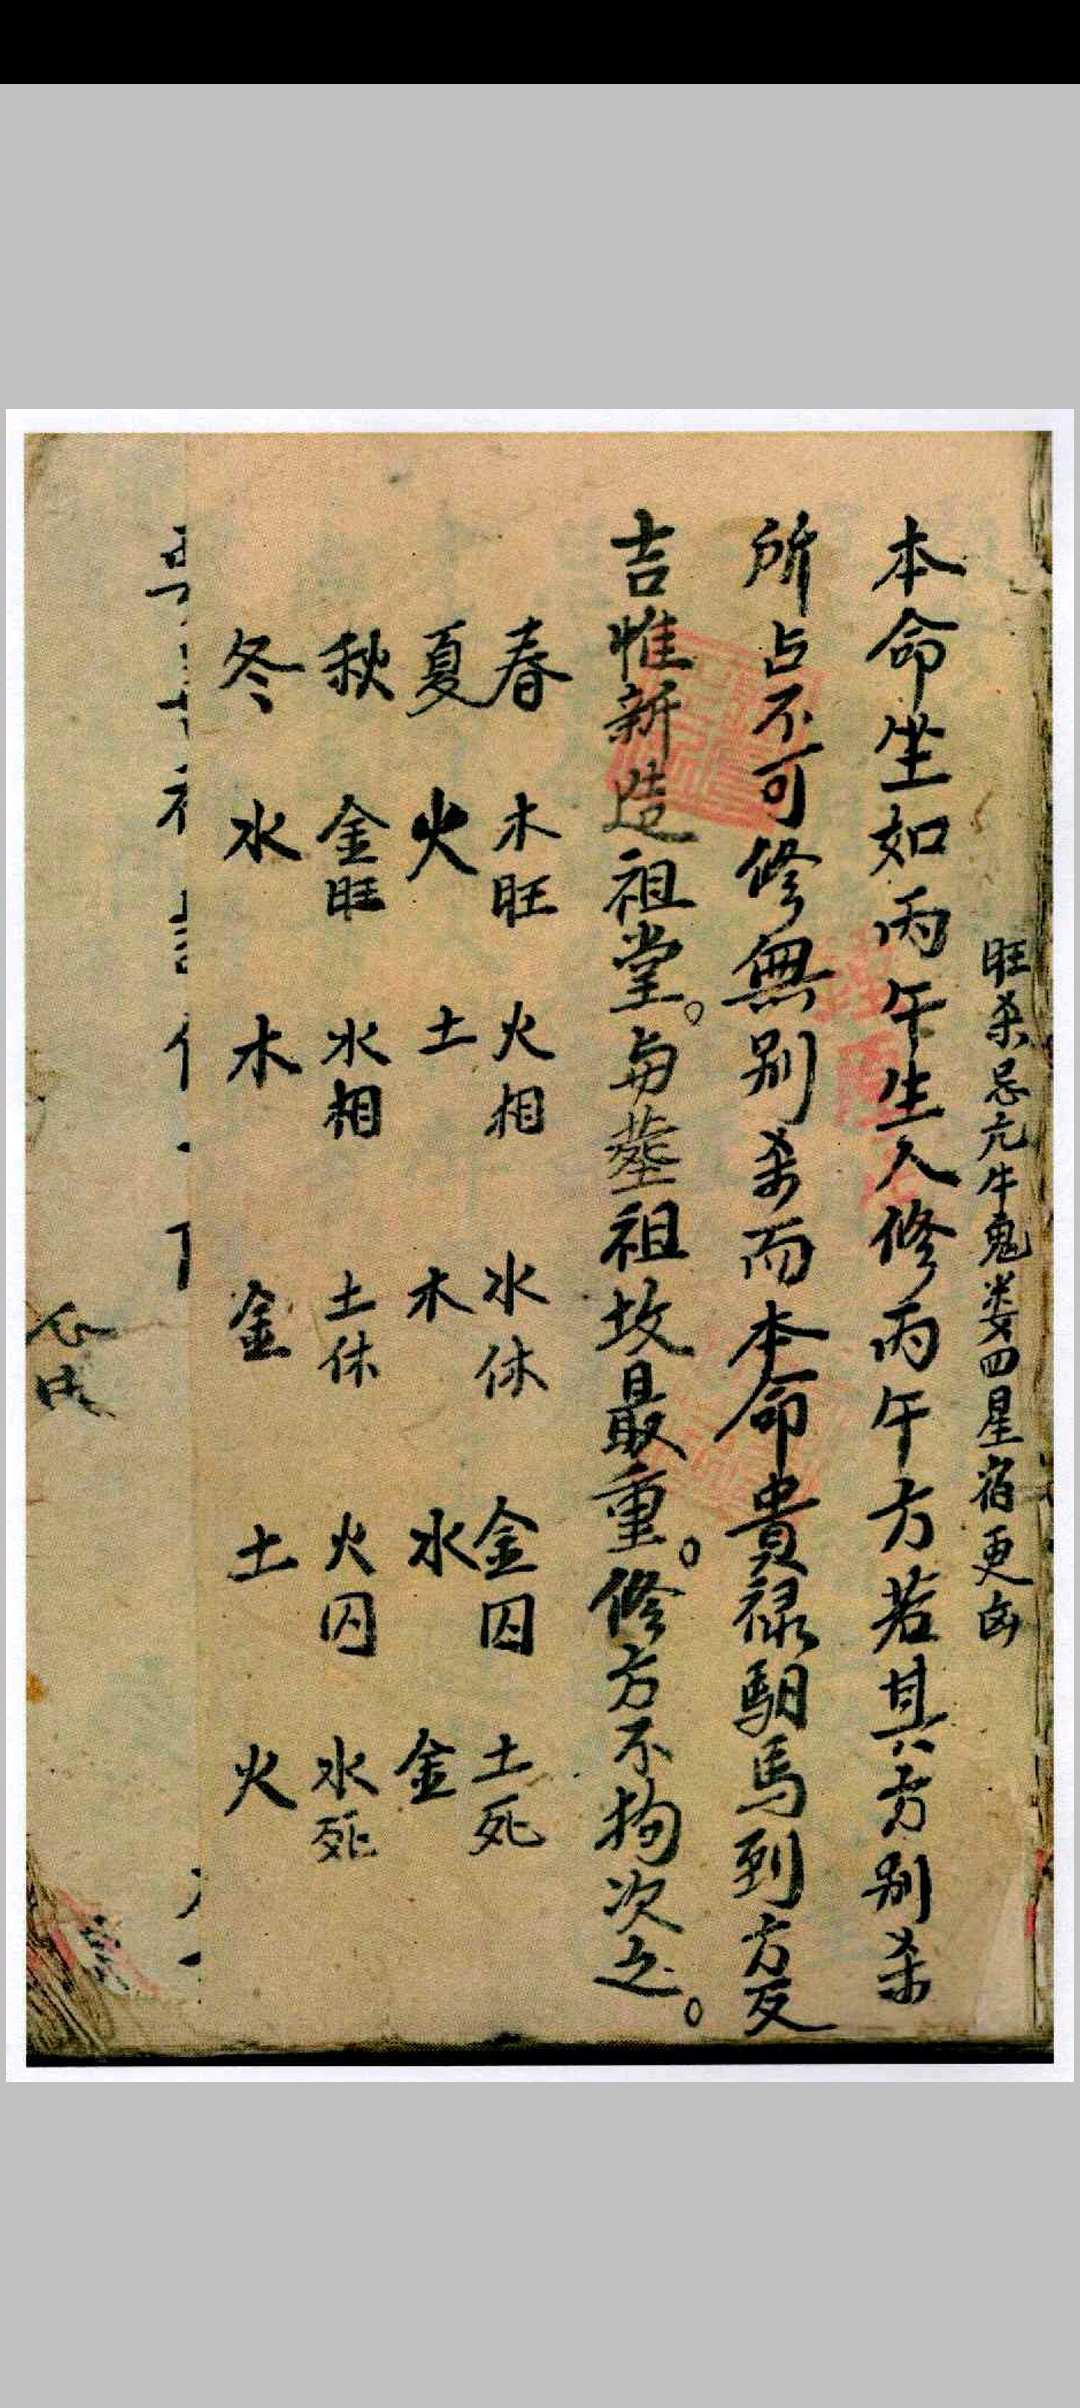 旺杀忌亢牛鬼娄四星宿更凶
本命坐如丙午生人修丙午方若其方别杀
所占不可修無别杀而本命貴禄馹馬到方反
吉惟新造祖堂。与葬祖坟最重。修方不拘次之。
春 木旺 火相 水休 金囚 土死
夏 火 土 木 水 金
秋 金旺 水相 土休 火囚 水死
冬 水 木 金 土 火